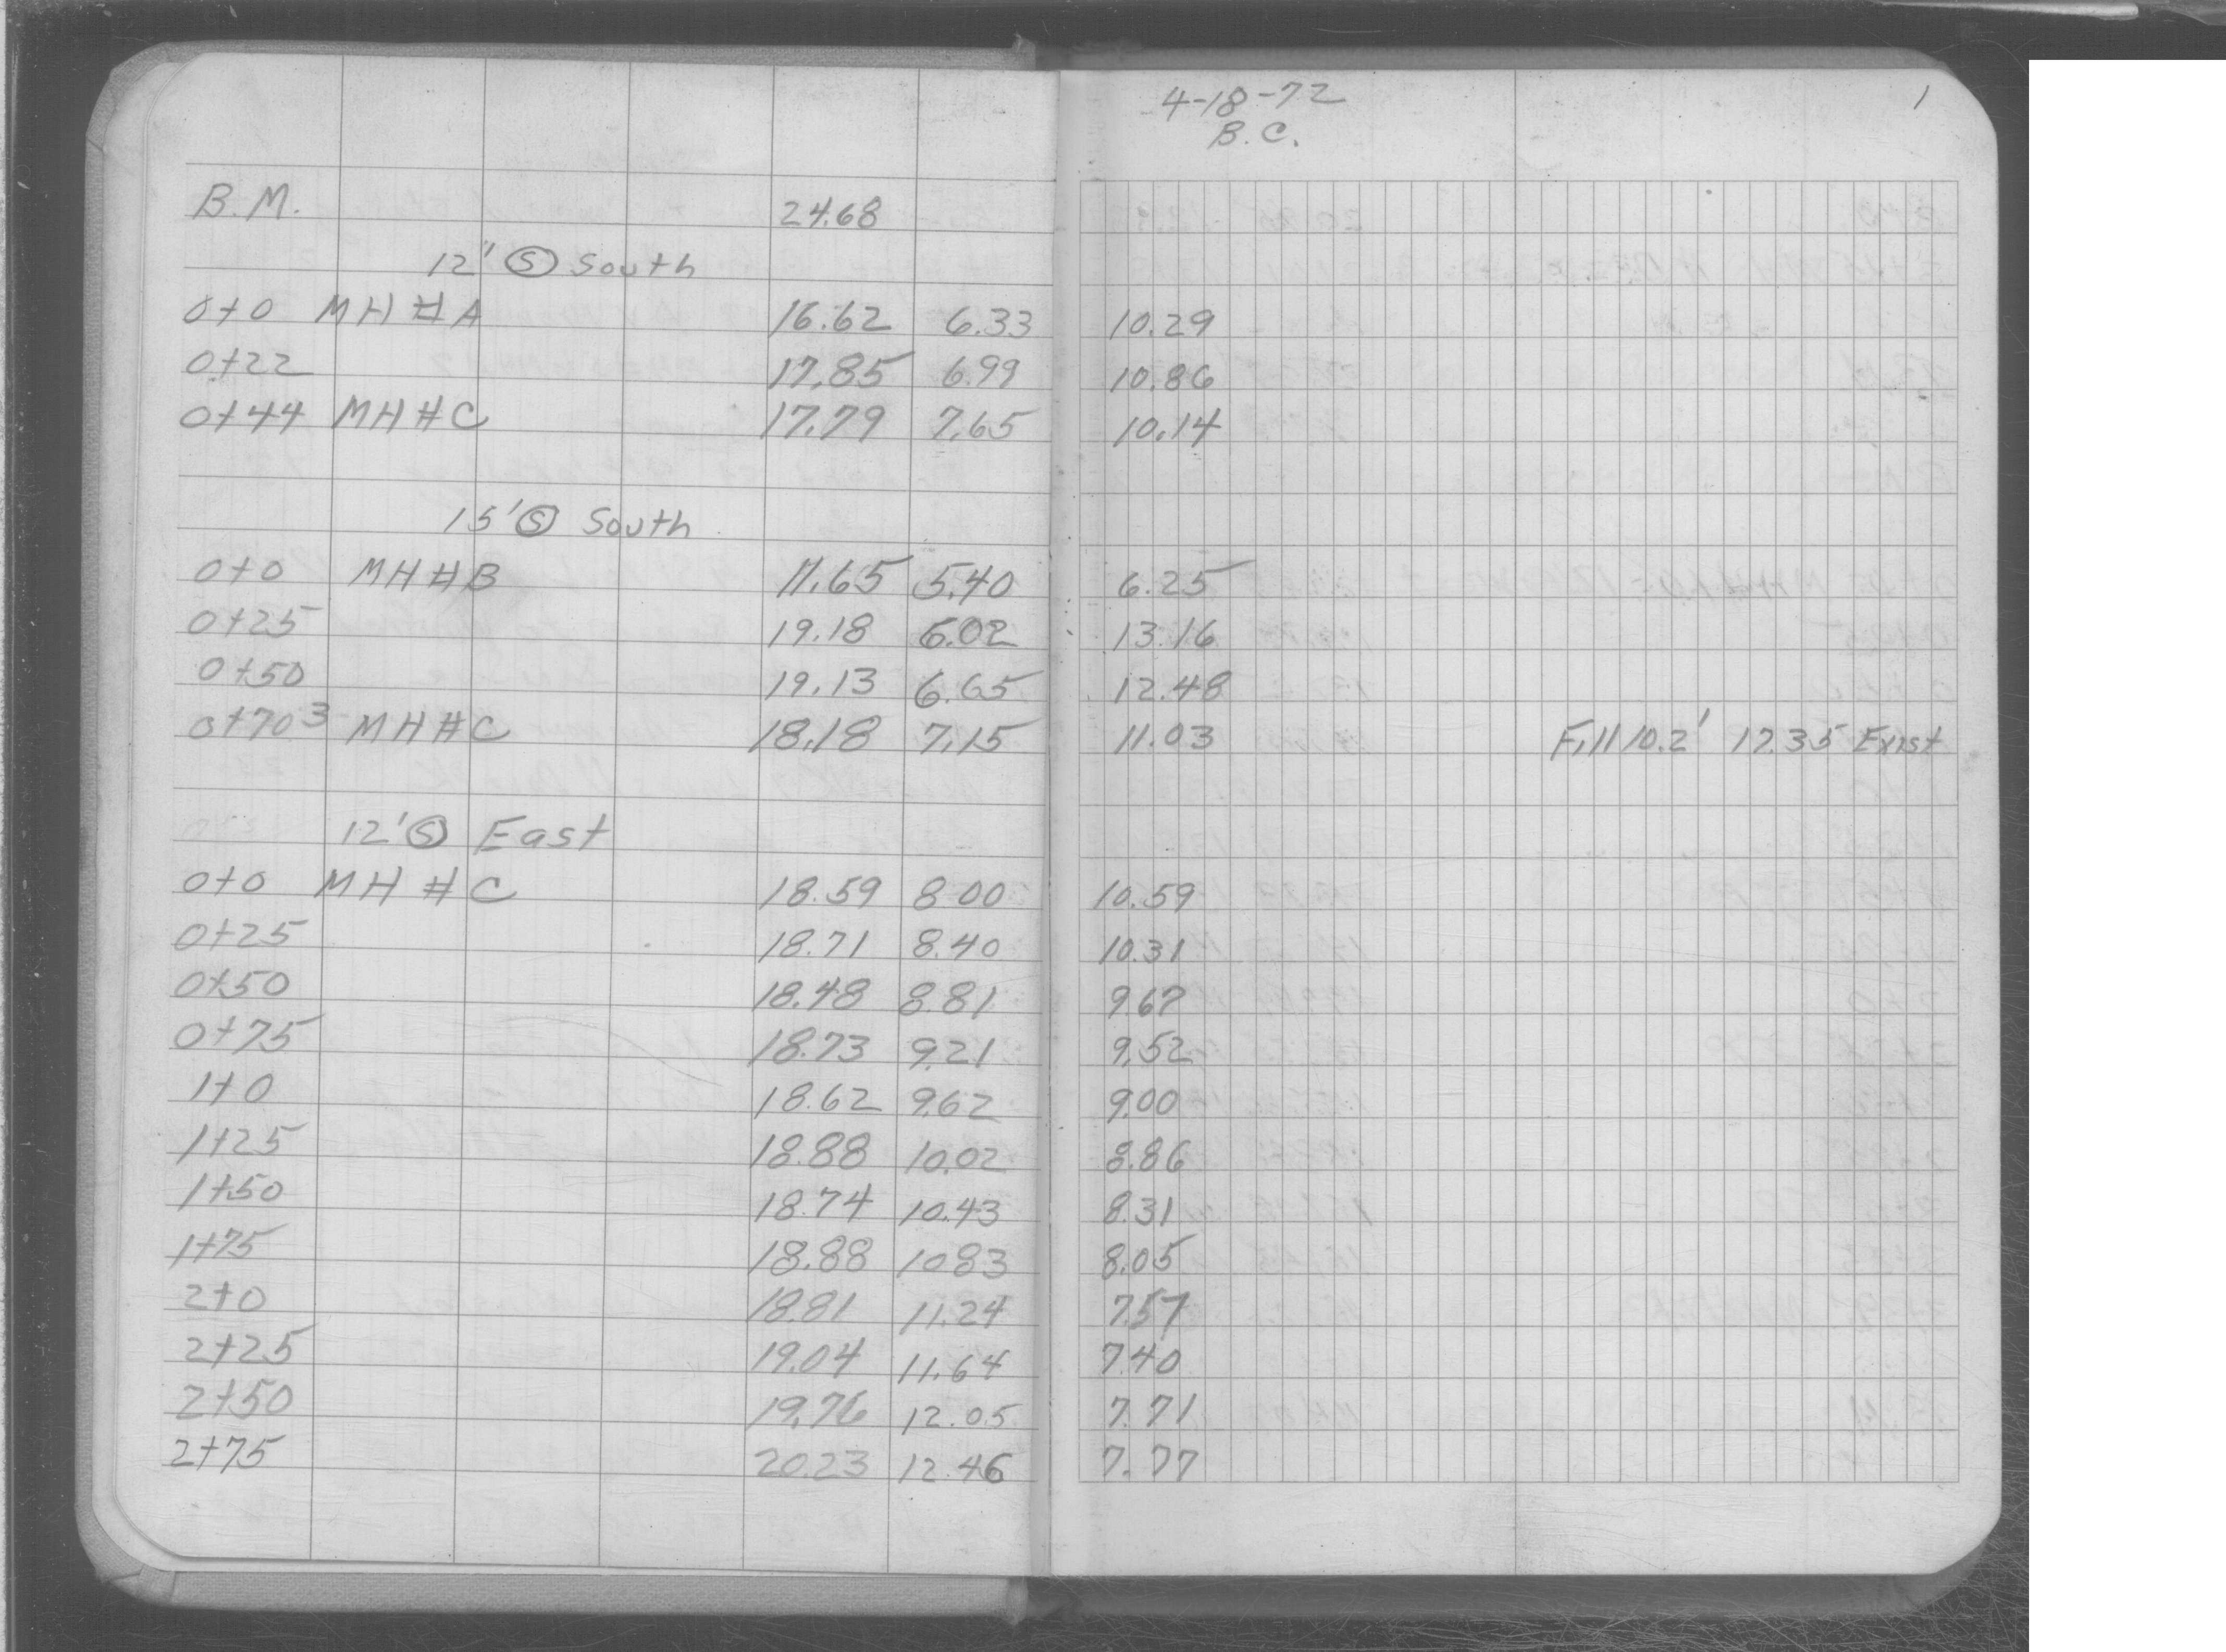 4-18-72 1
B.C.
B.M. 24.68
12' Ⓢ South
0+0 MH #A 16.62 6.33 10.29
0+22 17.85 6.99 10.86
0+44 MH #C 17.79 7.65 10.14
15' Ⓢ South
0+0 MH #B 11.65 5.40 6.25
0+25 19.18 6.02 13.16
0+50 19.13 6.65 12.48
0+70³ MH #C 18.18 7.15 11.03 Fill 10.2' 17.35 Exist
12' Ⓢ East
0+0 MH #C 18.59 8.00 10.59
0+25 18.71 8.40 10.31
0+50 18.48 8.81 9.67
0+75 18.73 9.21 9.52
1+0 18.62 9.62 9.00
1+25 18.88 10.02 8.86
1+50 18.74 10.43 8.31
1+75 18.88 10.83 8.05
2+0 18.81 11.24 7.57
2+25 19.04 11.64 7.40
2+50 19.76 12.05 7.71
2+75 20.23 12.46 7.77